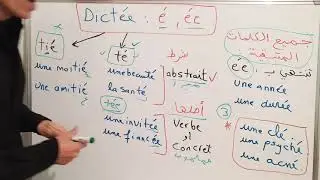 Dictée : é , ée
tié
une moitié
une amitié
té
une beauté
la santé
tée
une invitée
une fiancée
شرط
abstrait
أصلها
Verbe
أو
Concret
جميع الكلمات
المتبقية
تنتهي بـ : ée
une année
une durée
3
une clé.
une psyché
une acné.